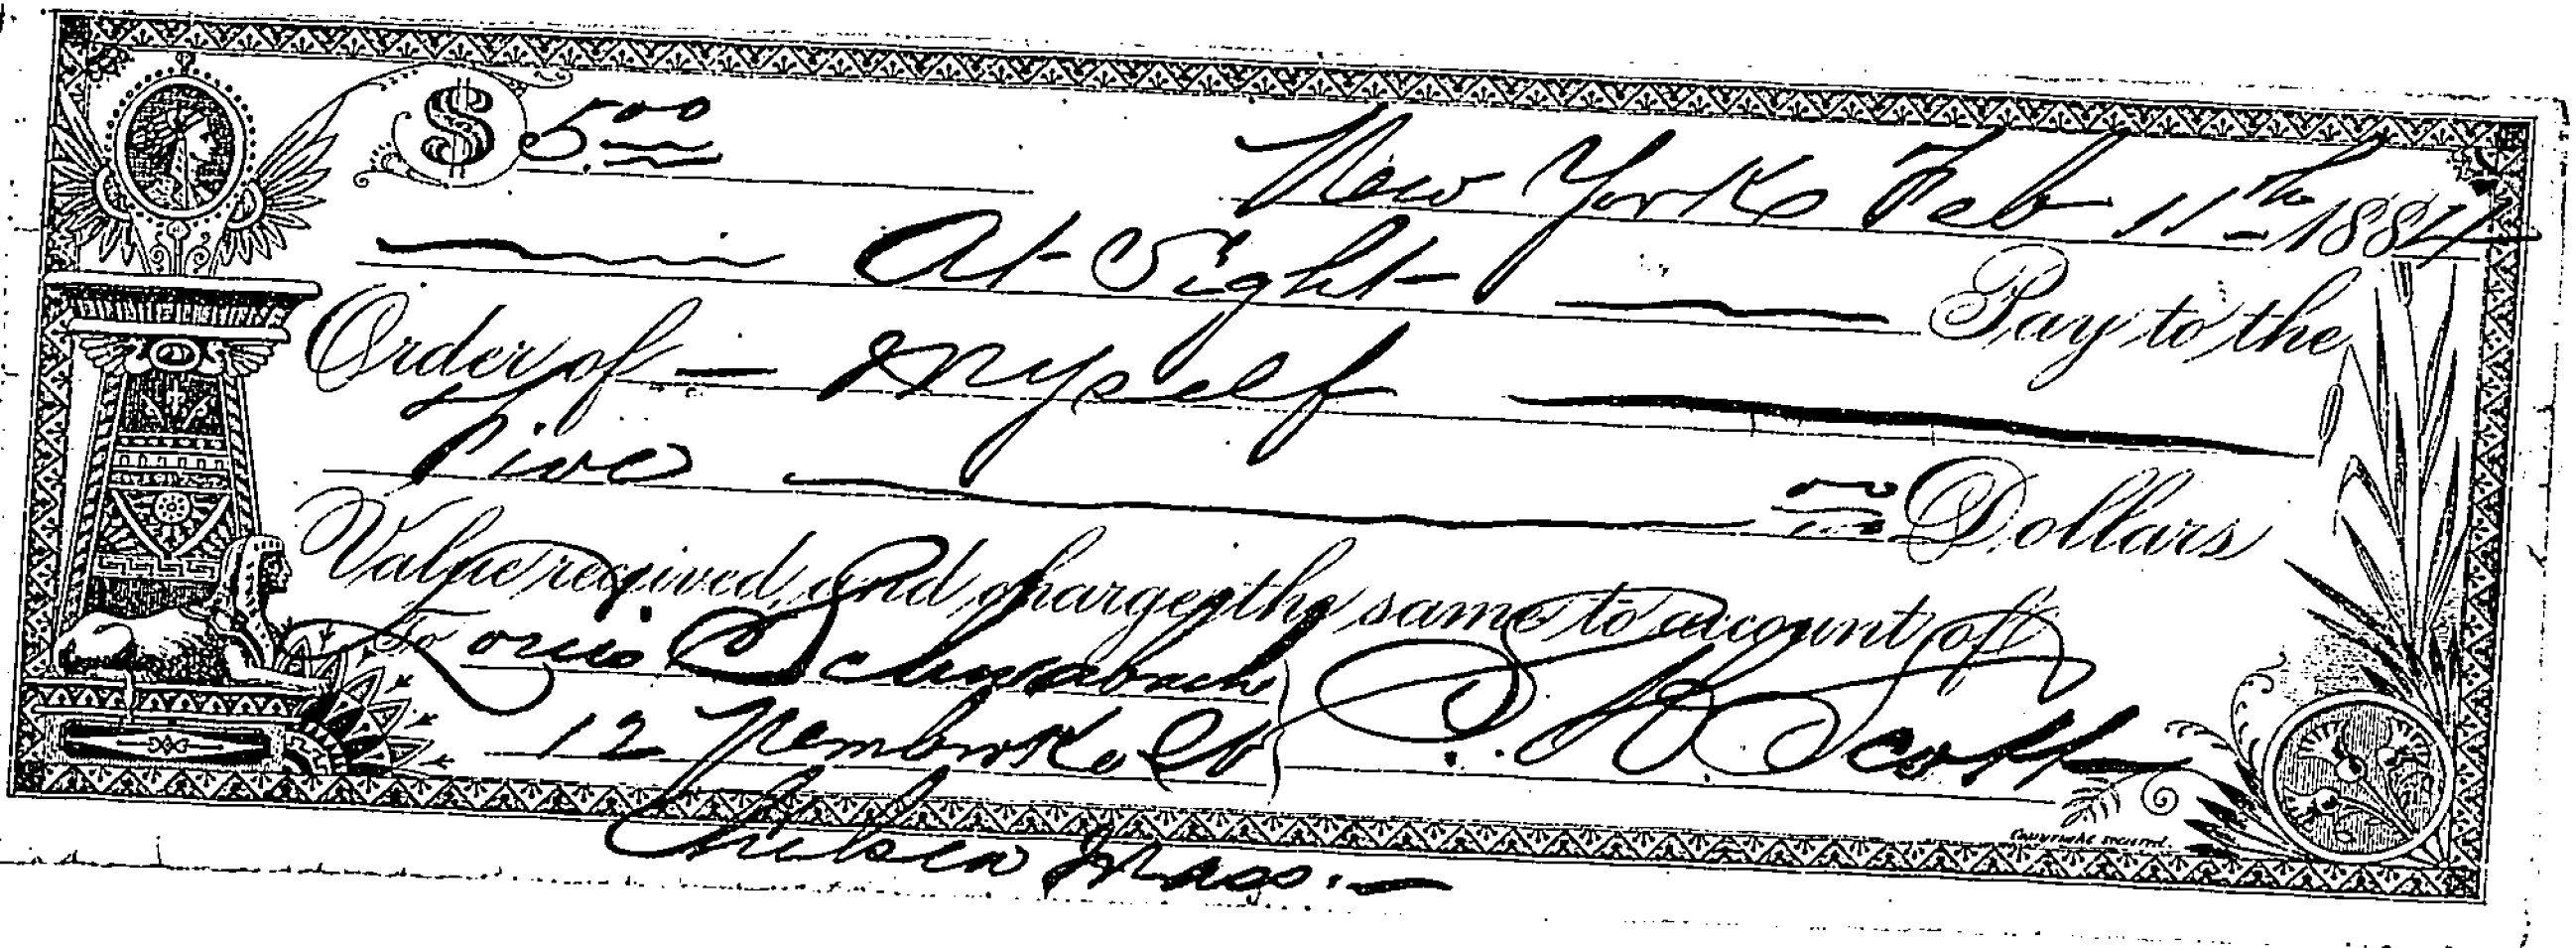 $ 5.00 New York Feb 11th 1884
At Sight Pay to the
Order of Myself
Five 00/100 Dollars
Value received, and charge the same to account of
To
12 Pembroke St Scott
Chelsea Mass.
Copyright secured.